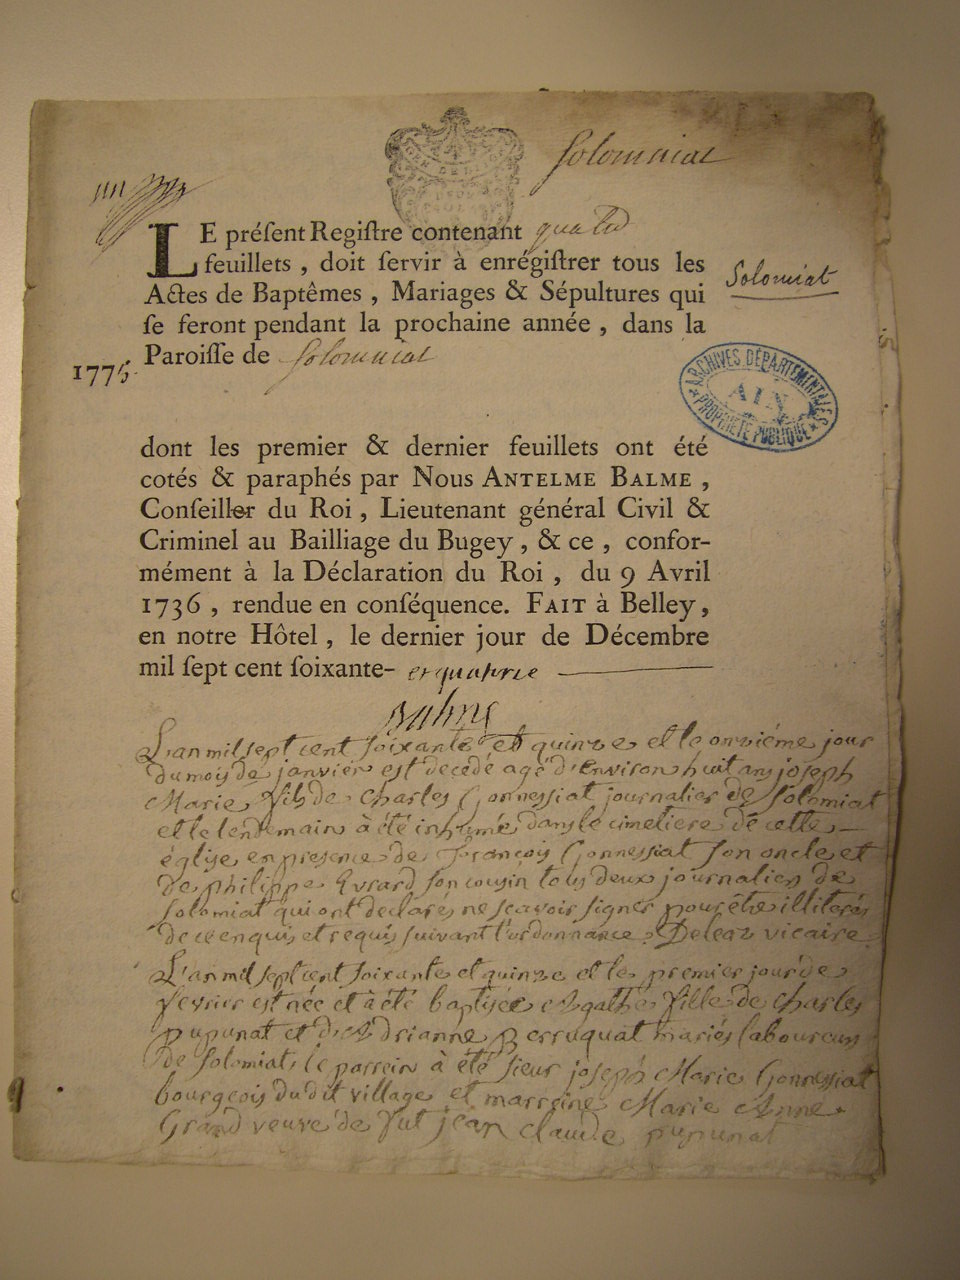 Solomiat
LE préſent Regiſtre contenant quatre
feuillets , doit ſervir à enrégiſtrer tous les
Actes de Baptêmes , Mariages & Sépultures qui
ſe feront pendant la prochaine année , dans la
Paroiſſe de Solomiat
Solomiat
1775.
ARCHIVES DÉPARTEMENTALES
AIN
PROPRIÉTÉ PUBLIQUE
dont les premier & dernier feuillets ont été
cotés & paraphés par Nous ANTELME BALME ,
Conſeiller du Roi , Lieutenant général Civil &
Criminel au Bailliage du Bugey , & ce , confor-
mément à la Déclaration du Roi , du 9 Avril
1736 , rendue en conſéquence. FAIT à Belley ,
en notre Hôtel , le dernier jour de Décembre
mil ſept cent ſoixante- et quatorze
Balme
L'an mil sept cent soixante et quinze et le onziéme jour
du mois de janvier est decedé agé d'environ huit ans joseph
Marie fils de Charles Gonnessiat journalier de Solomiat
et le lendemain à été inhumé dans le cimetiere de cette
église en presence de françois Gonnessiat son oncle et
de philippe Evrard son cousin tous deux journaliers de
Solomiat qui ont declarés ne scavoir signer pour être illiterés
de ce enquis et requis suivant l'ordonnance. Deleaz vicaire
L'an mil sept cent soixante et quinze et le premier jour de
fevrier est née et à été baptisée Agathe fille de Charles
pupunat et d'Adrianne perruquat mariés laboureurs
de Solomiat, le parrein à été sieur joseph Marie Gonnessiat
bourgeois dudit village et marreine Marie Anne
Grand veuve de fut jean Claude pupunat